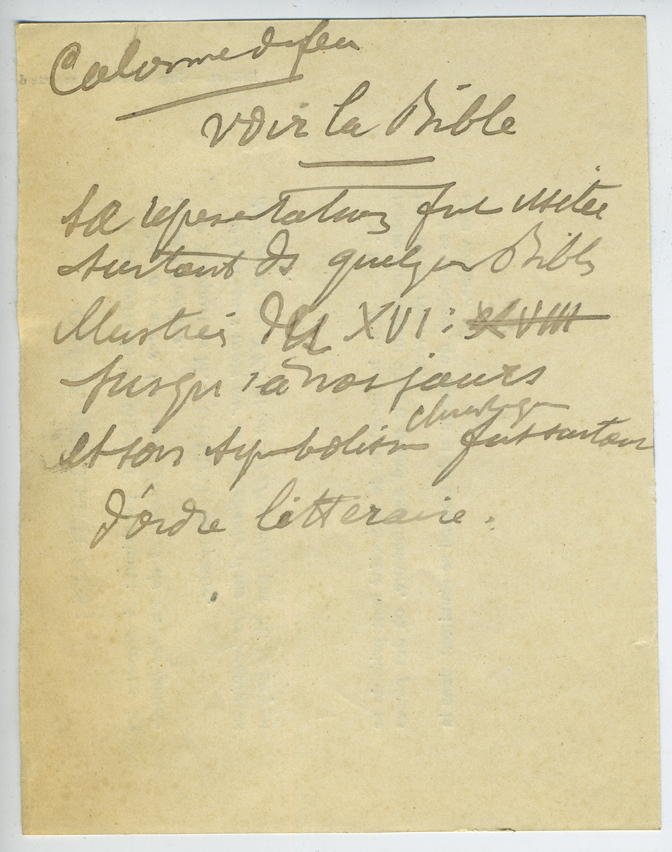 Colonne de feu
voir la Bible
Sa representation fut usitée
surtout ds quelques Bibles
illustrées du XVI: XVIII
jusqu'à nos jours
et son symbolisme fut surtout
d'ordre litteraire.